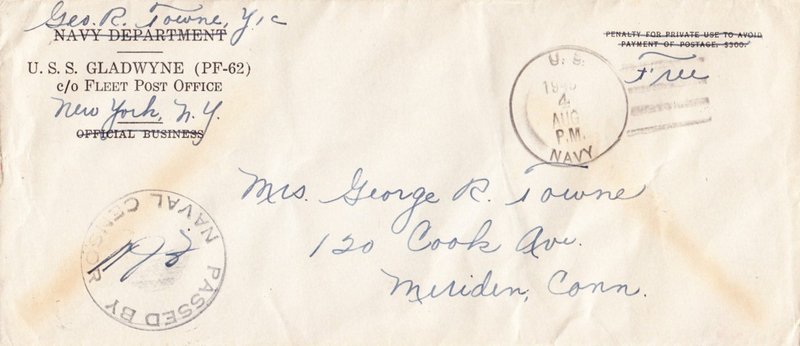 Geo. R. Towne, Y1c
NAVY DEPARTMENT
U. S. S. GLADWYNE (PF-62)
c/o FLEET POST OFFICE
New York, N.Y.
OFFICIAL BUSINESS
PENALTY FOR PRIVATE USE TO AVOID
PAYMENT OF POSTAGE, $300.
Free
U. S.
4
AUG
P.M.
NAVY
Mrs. George R. Towne
120 Cook Ave.
Meriden, Conn.
PASSED BY
NAVAL CENSOR